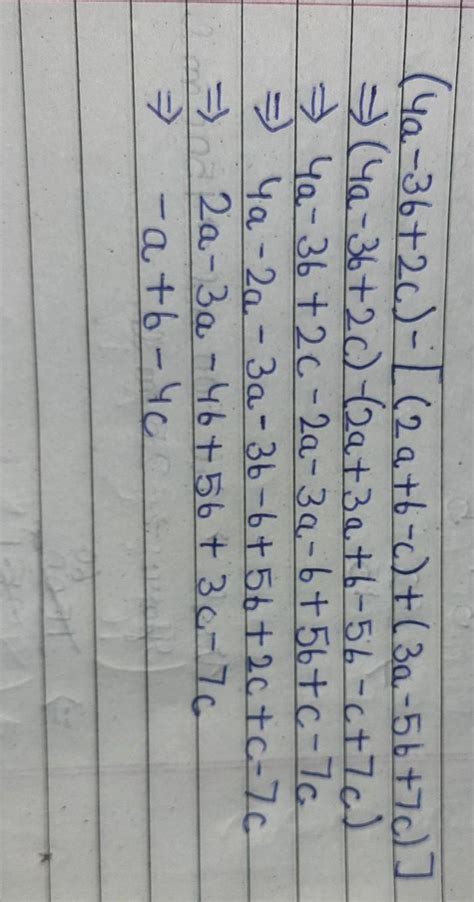 (4a-3b+2c)-[(2a+b-c)+(3a-5b+7c)]
⇒(4a-3b+2c)-(2a+3a+b-5b-c+7c)
⇒ 4a-3b+2c-2a-3a-b+5b+c-7c
⇒ 4a-2a-3a-3b-b+5b+2c+c-7c
⇒ 2a-3a-4b+5b+3c-7c
⇒ -a+b-4c